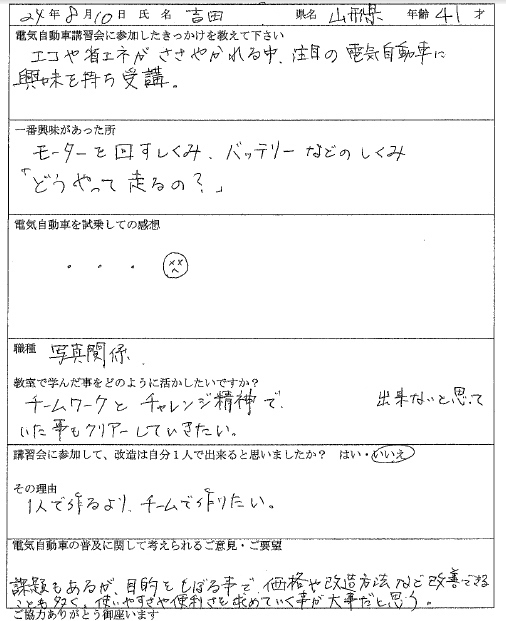 24年8月10日 氏名 吉田 県名 山形県 年齢 41才
電気自動車講習会に参加したきっかけを教えて下さい
エコや省エネがささやかれる中、注目の電気自動車に
興味を持ち受講。
一番興味があった所
モーターを回すしくみ、バッテリーなどのしくみ
「どうやって走るの？」
電気自動車を試乗しての感想
・ ・ ・
職種 写真関係、
教室で学んだ事をどのように活かしたいですか？
チームワークとチャレンジ精神で、 出来ないと思って
いた事もクリアーしていきたい。
講習会に参加して、改造は自分1人で出来ると思いましたか？ はい・いいえ
その理由
1人で作るより、チームで作りたい。
電気自動車の普及に関して考えられるご意見・ご要望
課題もあるが、目的をしぼる事で、価格や改造方法など改善できる
ことも多く、使いやすさや便利さを求めていく事が大事だと思う。
ご協力ありがとう御座います